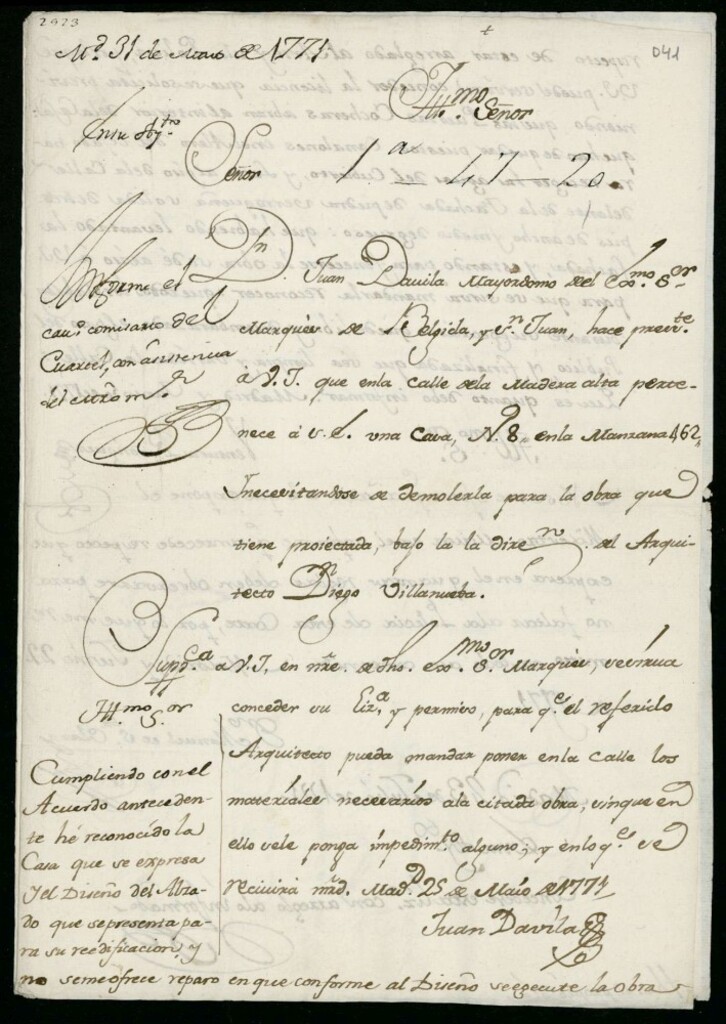 2923
041
M.d 31 de Maio de 1771
Ill.mo Señor
Señor
1a 47-20
Informe el
cav.o comisario del
Cuartel, con asistencia
del ... m.r
Dn. Juan Davila Mayordomo del Exmo. S.or
Marques de Belgida, y Sn. Juan, hace pres.te
à V.I. que enla calle dela Madera alta perte-
nece à S.E. una Casa, N.o 8. enla Manzana 462
Inecesitandose de demolerla para la obra que
tiene proiectada, bajo la la dire.n del Arqui-
tecto Dn Diego Villanueba.
Supp.ca a V.I. en nre. de dho. Exmo. S.or Marques, se sirva
conceder su liz.a y permiso, para q.e el referido
Arquitecto pueda mandar poner enla calle los
materiales necesarios ala citada obra, sinque en
ello sele ponga impedim.to alguno; y enlo q.e
recivirá mrd. Mad.d 25 de Maio de 1771
Juan Davila
Ill.mo S.or
Cumpliendo con el
Acuerdo anteceden-
te hé reconocido la
Casa que se expresa
y el Diseño del Alza-
do que se presenta pa-
ra su reedificacion, y
no seme ofrece reparo en que conforme al Diseño se egecute la Obra